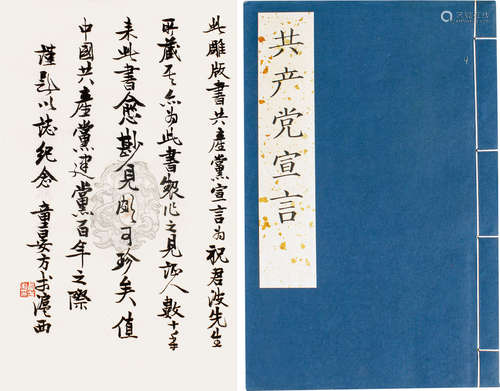 此雕版書共產黨宣言为祝君波先生
所藏亦为此書製作之見证人數十年
来此書愈尠見頗可珍矣值
中國共產黨建黨百年之際
謹題以誌紀念 童晏方於滬西
共产党宣言